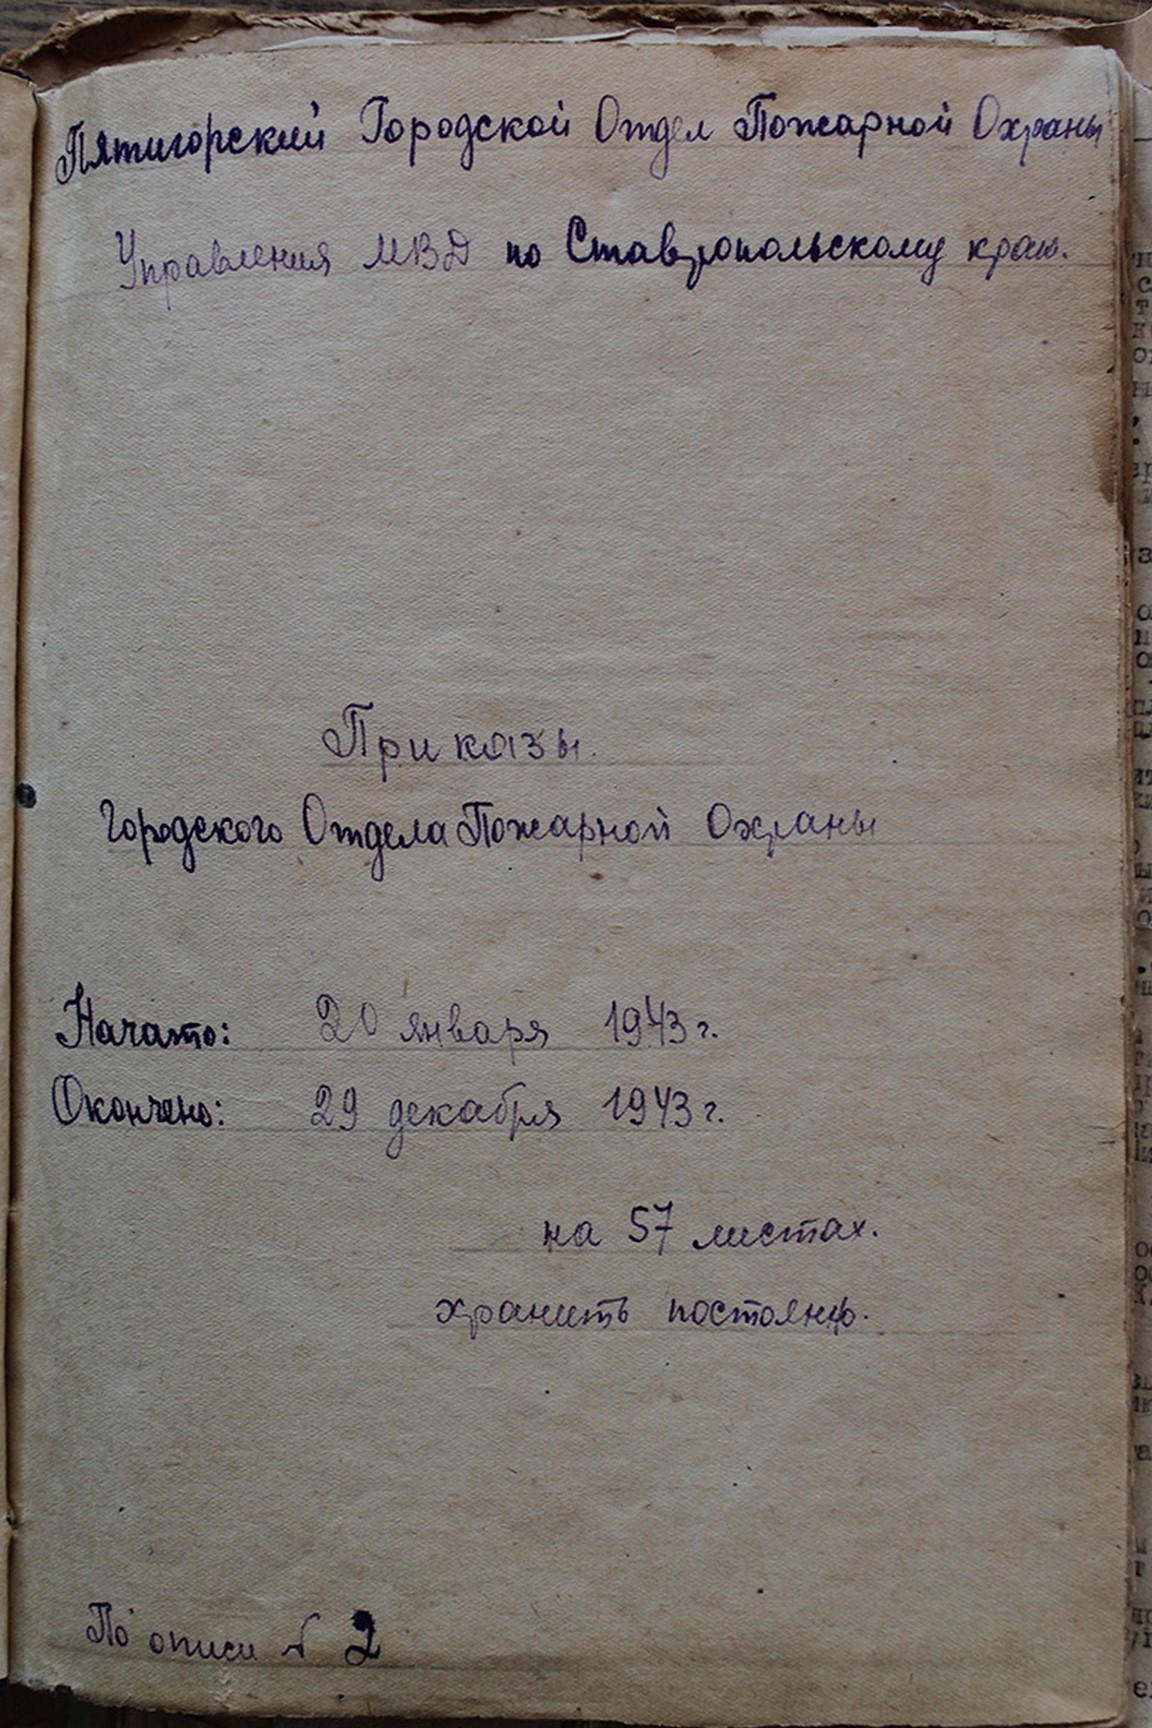 Пятигорский Городской Отдел Пожарной Охраны
Управления МВД по Ставропольскому краю.
Приказы.
Городского Отдела Пожарной Охраны
Начато: 20 января 1943 г.
Окончено: 29 декабря 1943 г.
на 57 листах.
хранить постоянно.
По описи № 2